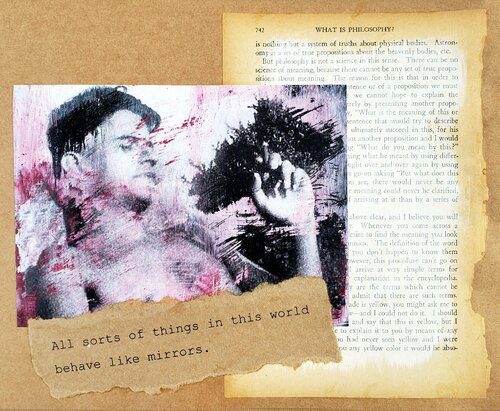 742 WHAT IS PHILOSOPHY?
is nothing but a system of truths about physical bodies. Astron-
omy is a set of true propositions about the heavenly bodies, etc.
But philosophy is not a science in this sense. There can be no
science of meaning, because there cannot be any set of true propo-
sitions about meaning. The reason for this is that in order to
tence or of a proposition we must
we cannot hope to explain the
rely by presenting another propo-
"What is the meaning of this or
entence that would try to describe
ultimately succeed in this, for his
on another proposition and I would
"What do you mean by this?"
ing what he meant by using differ-
ght over and over again by using
go on asking "But what does this
us see, there would never be any
meaning could never be clarified,
arriving at it than by a series of
above clear, and I believe you will
Whenever you come across a
esire to find the meaning you look
annica. The definition of the word
you don't happen to know them
owever, this procedure can't go on
arrive at very simple terms for
explanation in the encyclopedia.
ey are the terms which cannot be
admit that there are such terms.
ade is yellow, you might ask me to
w—and I could not do it. I should
and say that this is yellow, but I
e to explain it to you by means of any
ou had never seen yellow and I were
ou any yellow color it would be abso-
All sorts of things in this world
behave like mirrors.